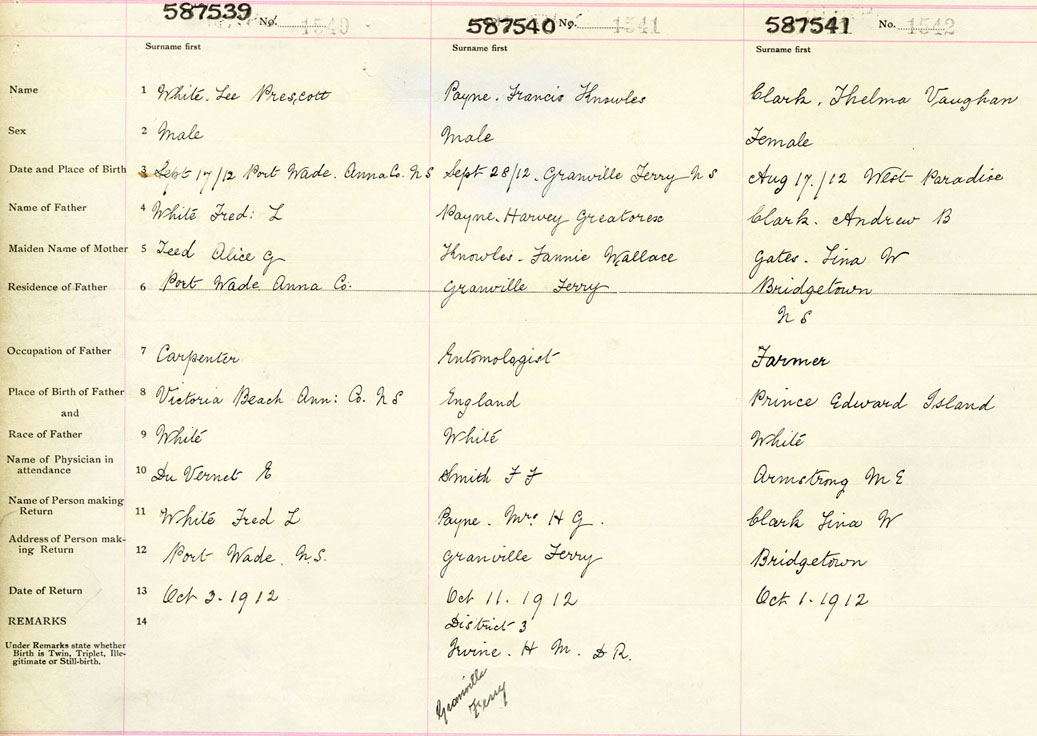 587539 No. 1540 587540 No. 1541 587541 No. 1542
Surname first Surname first Surname first
Name 1 White. Lee Prescott Payne. Francis Knowles Clark, Thelma Vaughan
Sex 2 Male Male Female
Date and Place of Birth 3 Sept 17/12 Port Wade. Anna Co. NS Sept 28/12. Granville Ferry NS Aug 17/12 West Paradise
Name of Father 4 White Fred: L Payne. Harvey Greatorex Clark. Andrew B
Maiden Name of Mother 5 Teed Alice G Knowles. Fannie Wallace Gates. Lina W
Residence of Father 6 Port Wade Anna Co. Granville Ferry Bridgetown
NS
Occupation of Father 7 Carpenter Entomologist Farmer
Place of Birth of Father 8 Victoria Beach Ann: Co. NS England Prince Edward Island
and
Race of Father 9 White White White
Name of Physician in
attendance 10 Du Vernet E Smith F F Armstrong M E
Name of Person making
Return 11 White Fred L Payne. Mrs H G. Clark Lina W
Address of Person mak-
ing Return 12 Port Wade. N.S. Granville Ferry Bridgetown
Date of Return 13 Oct 3. 1912 Oct 11. 1912 Oct 1. 1912
REMARKS 14 District 3
Under Remarks state whether
Birth is Twin, Triplet, Ille-
gitimate or Still-birth.
Irvine. H M. DR.
Granville
Ferry